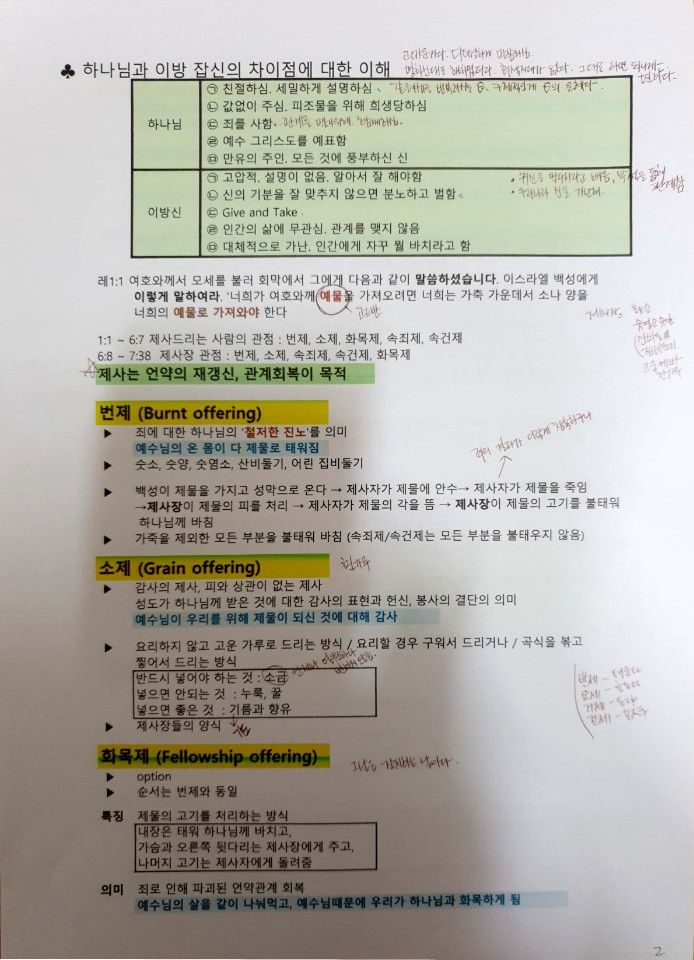 ♣ 하나님과 이방 잡신의 차이점에 대한 이해
하나님
㉠ 친절하심. 세밀하게 설명하심
㉡ 값없이 주심. 피조물을 위해 희생당하심
㉢ 죄를 사함.
㉣ 예수 그리스도를 예표함
㉤ 만유의 주인. 모든 것에 풍부하신 신
이방신
㉠ 고압적. 설명이 없음. 알아서 잘 해야함
㉡ 신의 기분을 잘 맞추지 않으면 분노하고 벌함
㉢ Give and Take
㉣ 인간의 삶에 무관심. 관계를 맺지 않음
㉤ 대체적으로 가난. 인간에게 자꾸 뭘 바치라고 함
레1:1 여호와께서 모세를 불러 회막에서 그에게 다음과 같이 말씀하셨습니다. 이스라엘 백성에게
이렇게 말하여라. '너희가 여호와께 예물을 가져오려면 너희는 가축 가운데서 소나 양을
너희의 예물로 가져와야 한다
고르반
1:1 ~ 6:7 제사드리는 사람의 관점 : 번제, 소제, 화목제, 속죄제, 속건제
6:8 ~ 7:38 제사장 관점 : 번제, 소제, 속죄제, 속건제, 화목제
☆ 제사는 언약의 재갱신, 관계회복이 목적
번제 (Burnt offering)
▶ 죄에 대한 하나님의 '철저한 진노'를 의미
예수님의 온 몸이 다 제물로 태워짐
▶ 숫소, 숫양, 숫염소, 산비둘기, 어린 집비둘기
▶ 백성이 제물을 가지고 성막으로 온다 → 제사자가 제물에 안수→ 제사자가 제물을 죽임
→제사장이 제물의 피를 처리 → 제사자가 제물의 각을 뜸 → 제사장이 제물의 고기를 불태워
하나님께 바침
▶ 가죽을 제외한 모든 부분을 불태워 바침 (속죄제/속건제는 모든 부분을 불태우지 않음)
소제 (Grain offering)
▶ 감사의 제사, 피와 상관이 없는 제사
성도가 하나님께 받은 것에 대한 감사의 표현과 헌신, 봉사의 결단의 의미
예수님이 우리를 위해 제물이 되신 것에 대해 감사
▶ 요리하지 않고 고운 가루로 드리는 방식 / 요리할 경우 구워서 드리거나 / 곡식을 볶고
찧어서 드리는 방식
반드시 넣어야 하는 것 : 소금
넣으면 안되는 것 : 누룩, 꿀
넣으면 좋은 것 : 기름과 향유
▶ 제사장들의 양식
화목제 (Fellowship offering)
▶ option
▶ 순서는 번제와 동일
특징 제물의 고기를 처리하는 방식
내장은 태워 하나님께 바치고,
가슴과 오른쪽 뒷다리는 제사장에게 주고,
나머지 고기는 제사자에게 돌려줌
의미 죄로 인해 파괴된 언약관계 회복
예수님의 살을 같이 나눠먹고, 예수님때문에 우리가 하나님과 화목하게 됨
2